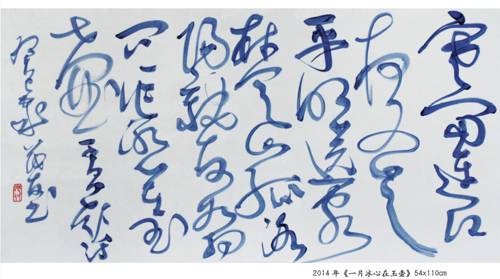 寒雨連江
夜入吴
平明送客
楚山孤洛
陽親友如相問
一片冰心在玉
壶 王昌齡詩
2014 年《一片冰心在玉壶》54x110cm